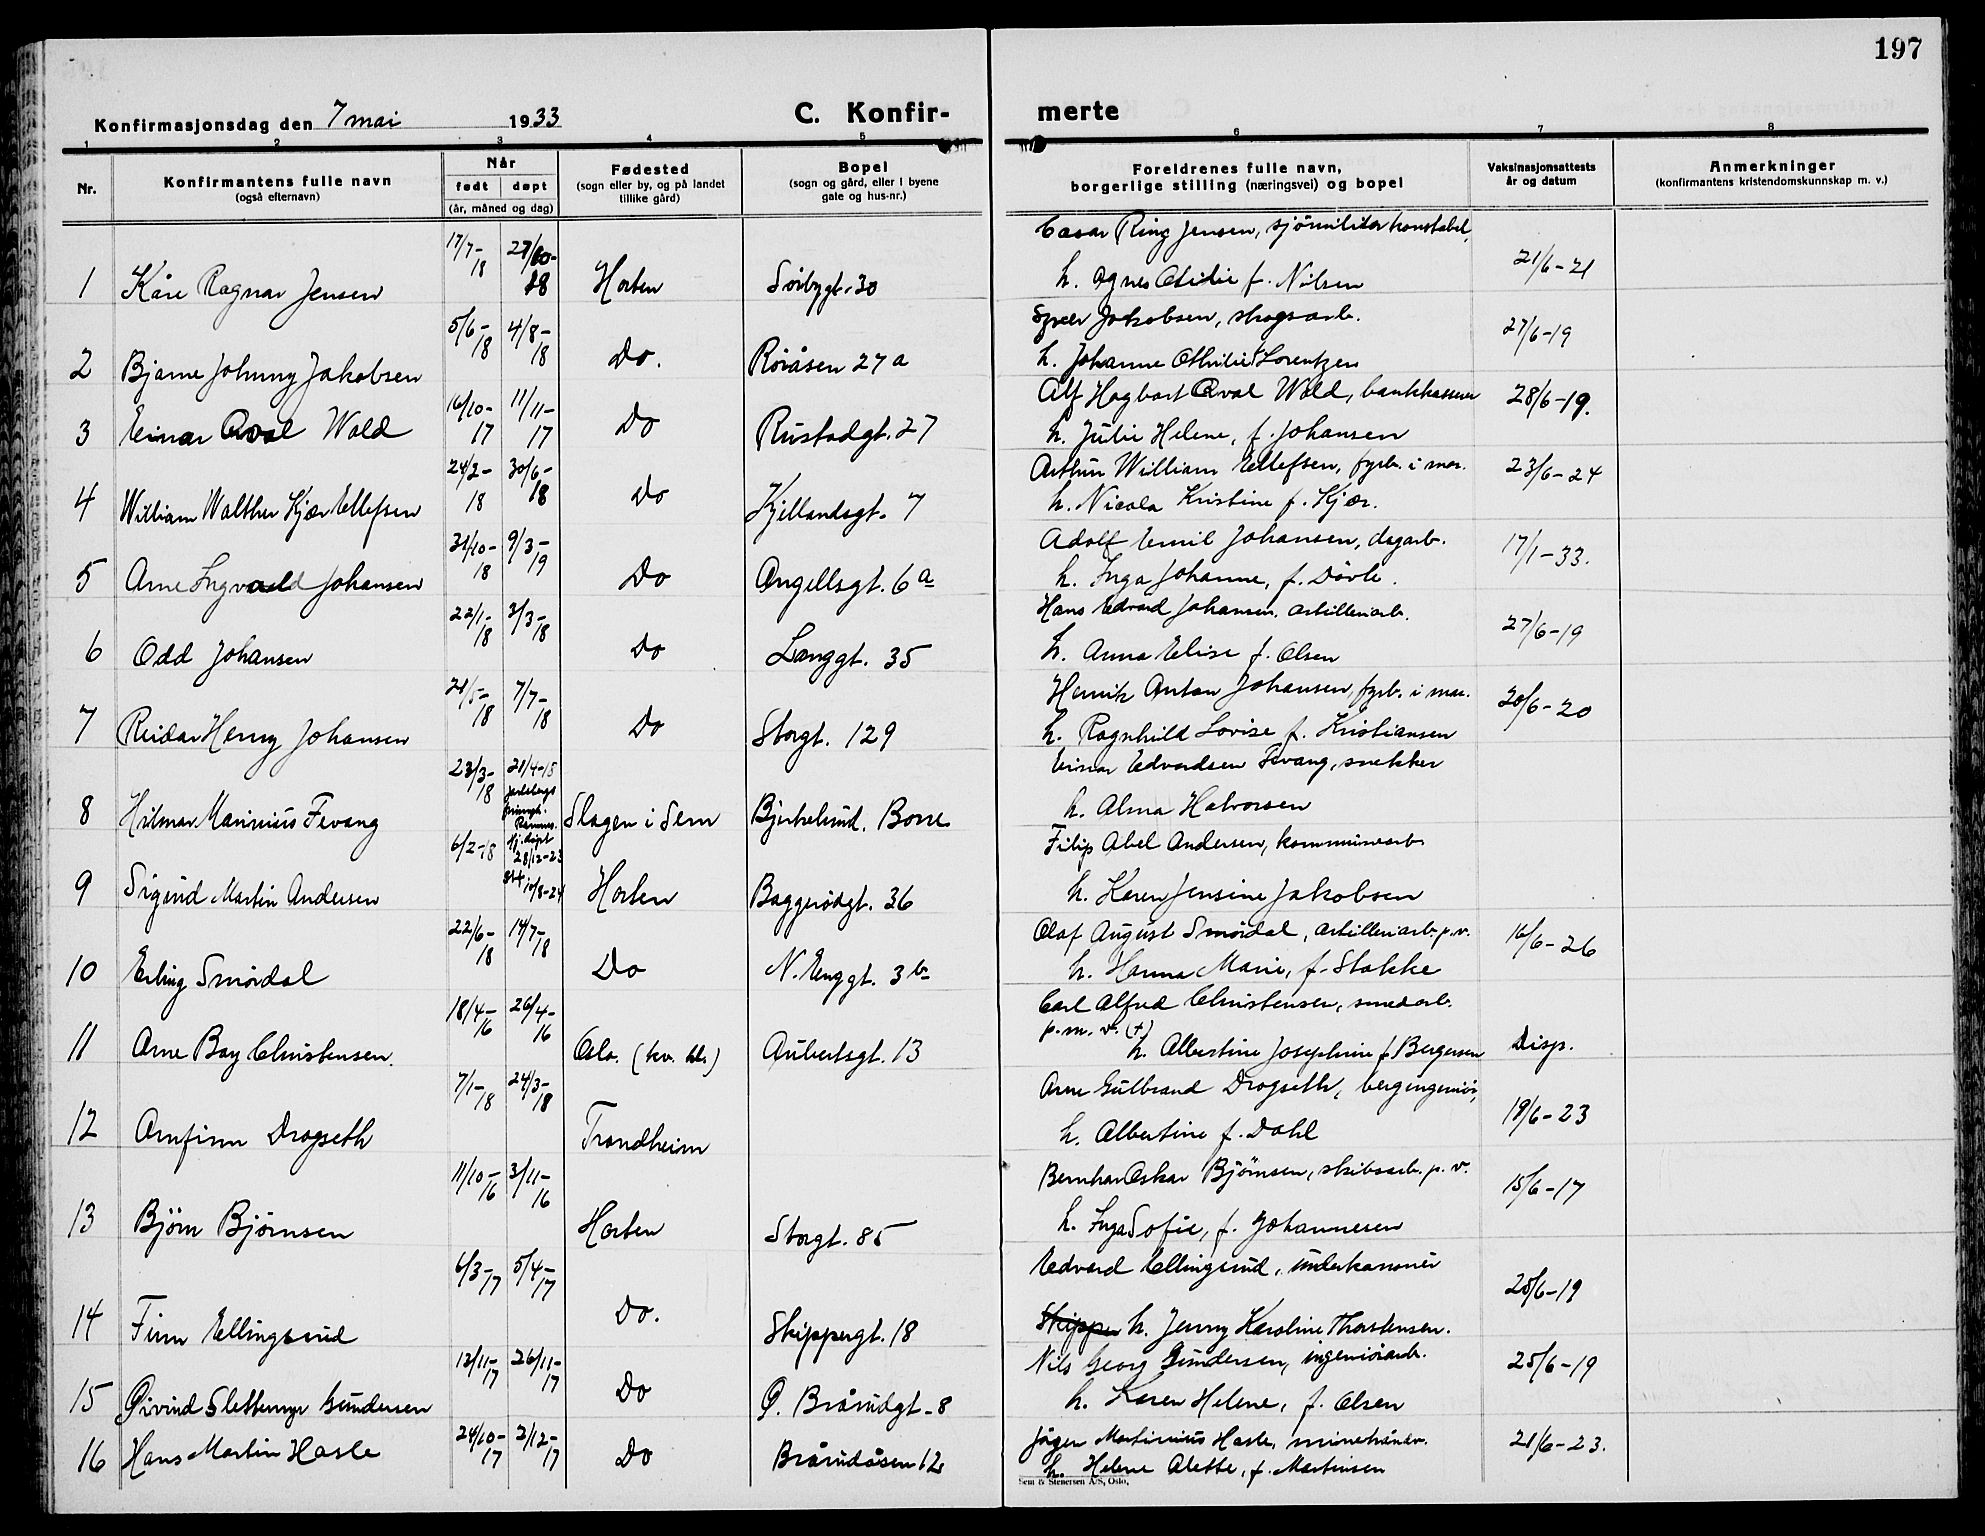 197
Konfirmasjonsdag den 7 mai 1933
C. Konfir-
merte
1 2 3 4 5 6 7 8
Nr.
Konfirmantens fulle navn
(også efternavn)
Når
født døpt
(år, måned og dag)
Fødested
(sogn eller by, og på landet
tillike gård)
Bopel
(sogn og gård, eller i byene
gate og hus-nr.)
Foreldrenes fulle navn,
borgerlige stilling (næringsvei) og bopel
Vaksinasjonsattests
år og datum
Anmerkninger
(konfirmantens kristendomskunnskap m. v.)
1 Kåre Ragnar Jensen 17/7-18 Horten Sørbygt. 30
Ring Jensen,
h. Agnes f. Nilsen 21/6-21
2 Bjarne Johnny Jakobsen 5/6-18 4/8-18 Do. Røråsen 27a
Jakobsen, skogsarb.
h. Johanne Othilie Lorentzen 27/6-19
3 Einar Qval Wold 16/10-17 11/11-17 Do Rustadgt. 27
Alf Hagbart Qval Wold, bankkasserer
h. Julie Helene, f. Johansen 28/6-19.
4 William Walther Kjær Ellefsen 24/2-18 30/6-18 Do Kjellandsgt. 7
Arthur William Ellefsen, fyrb. i mar.
h. Nicola Kristine f. Kjær. 23/6-24
5 Arne Ingvald Johansen 31/10-18 9/3-19 Do Angellsgt. 6a
Adolf Emil Johansen, dagarb.
h. Inga Johanne, f. Døvle. 17/1-33.
6 Odd Johansen 22/1-18 3/3-18 Do Langgt. 35
Hans Edvard Johansen. artilleriarb.
h. Anna Elise f. Olsen 27/6-19
7 Reidar Henry Johansen 21/5-18 7/7-18 Do Storgt. 129
Henrik Anton Johansen, fyrb. i mar.
h. Ragnhild Lovise f. Kristiansen 20/6-20
8 Hilmar Marinius Fevang 23/3-18 21/4-15 Slagen i Sem Bjerkelund. Borre
Einar Edvardsen Fevang, snekker
h. Alma Halvorsen
9 Sigurd Martin Andersen 6/2-18 Hj. døpt 28/12-23 10/8-24 Horten Baggerødgt. 36
Filip Abel Andersen, kommunearb.
h. Karen Jensine Jakobsen
10 Erling Smørdal 22/6-18 14/7-18 Do N. Enggt. 3b
Olaf August Smørdal, artilleriarb. p. v.
h. Hanna Marie, f. Stokke 16/6-26
11 Arne Boy Christensen. 18/4-16 26/4-16 Oslo. Aubertsgt. 13
Carl Alfred Christensen, smedarb.
p. m. v. (+)
h. Albertine Josephine f. Bergersen Disp.
12 Arnfinn Drogseth 7/1-18 24/3-18 Trondheim
Arne Gulbrand Drogseth, bergingeniør,
h. Albertine f. Dahl 19/6-23
13 Bjørn Bjørnsen 11/10-16 3/11-16 Horten Storgt. 85
Bernhar Oskar Bjørnsen, skibsarb. p. v.
h. Inga Sofie, f. Johannesen 15/6-17
14 Finn Ellingsrud 6/3-17 5/4-17 Do. Skippergt. 18
Edvard Ellingsrud, underkanonér
Skipper h. Jenny Karoline Thorstensen. 25/6-19
15 Øivind Slettemyr Gundersen 12/11-17 26/11-17 Do Ø. Brårudgt. 8
Nils Georg Gundersen, ingeniørarb.
h. Karen Helene, f. Olsen 25/6-19
16 Hans Martin Hasle 24/10-17 2/12-17 Do Brårudåsen 12
Jørgen Martinius Hasle,
h. Helene Alette, f. Martinsen 21/6-23.
Sem & Stenersen A/S, Oslo.